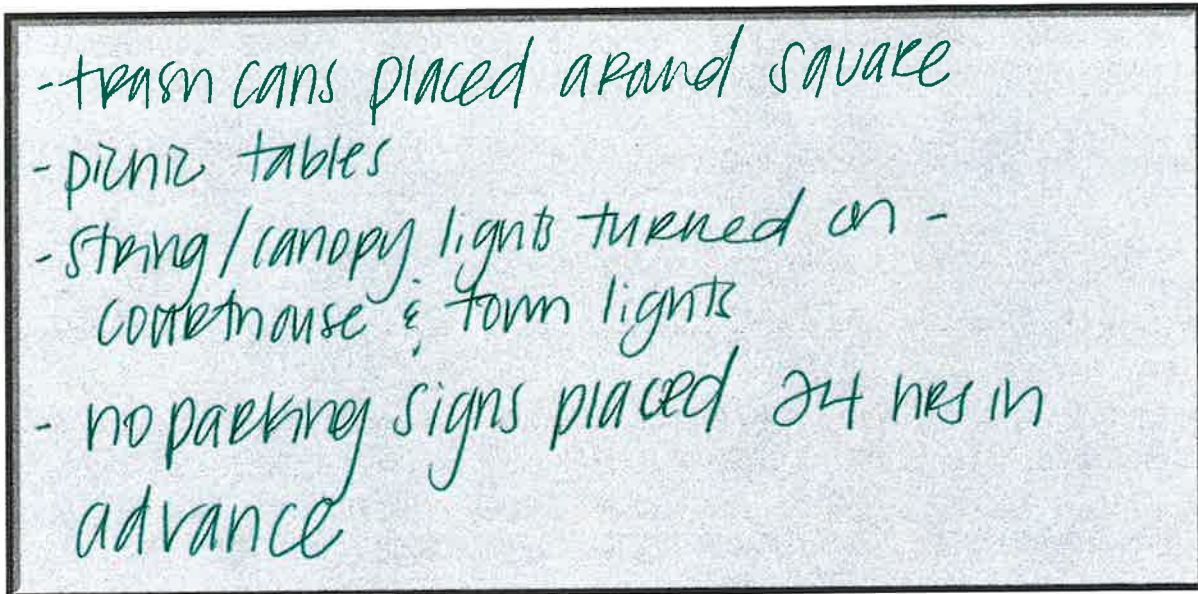 - trash cans placed around square
- picnic tables
- string/canopy lights turned on -
courthouse & town lights
- no parking signs placed 24 hrs in
advance